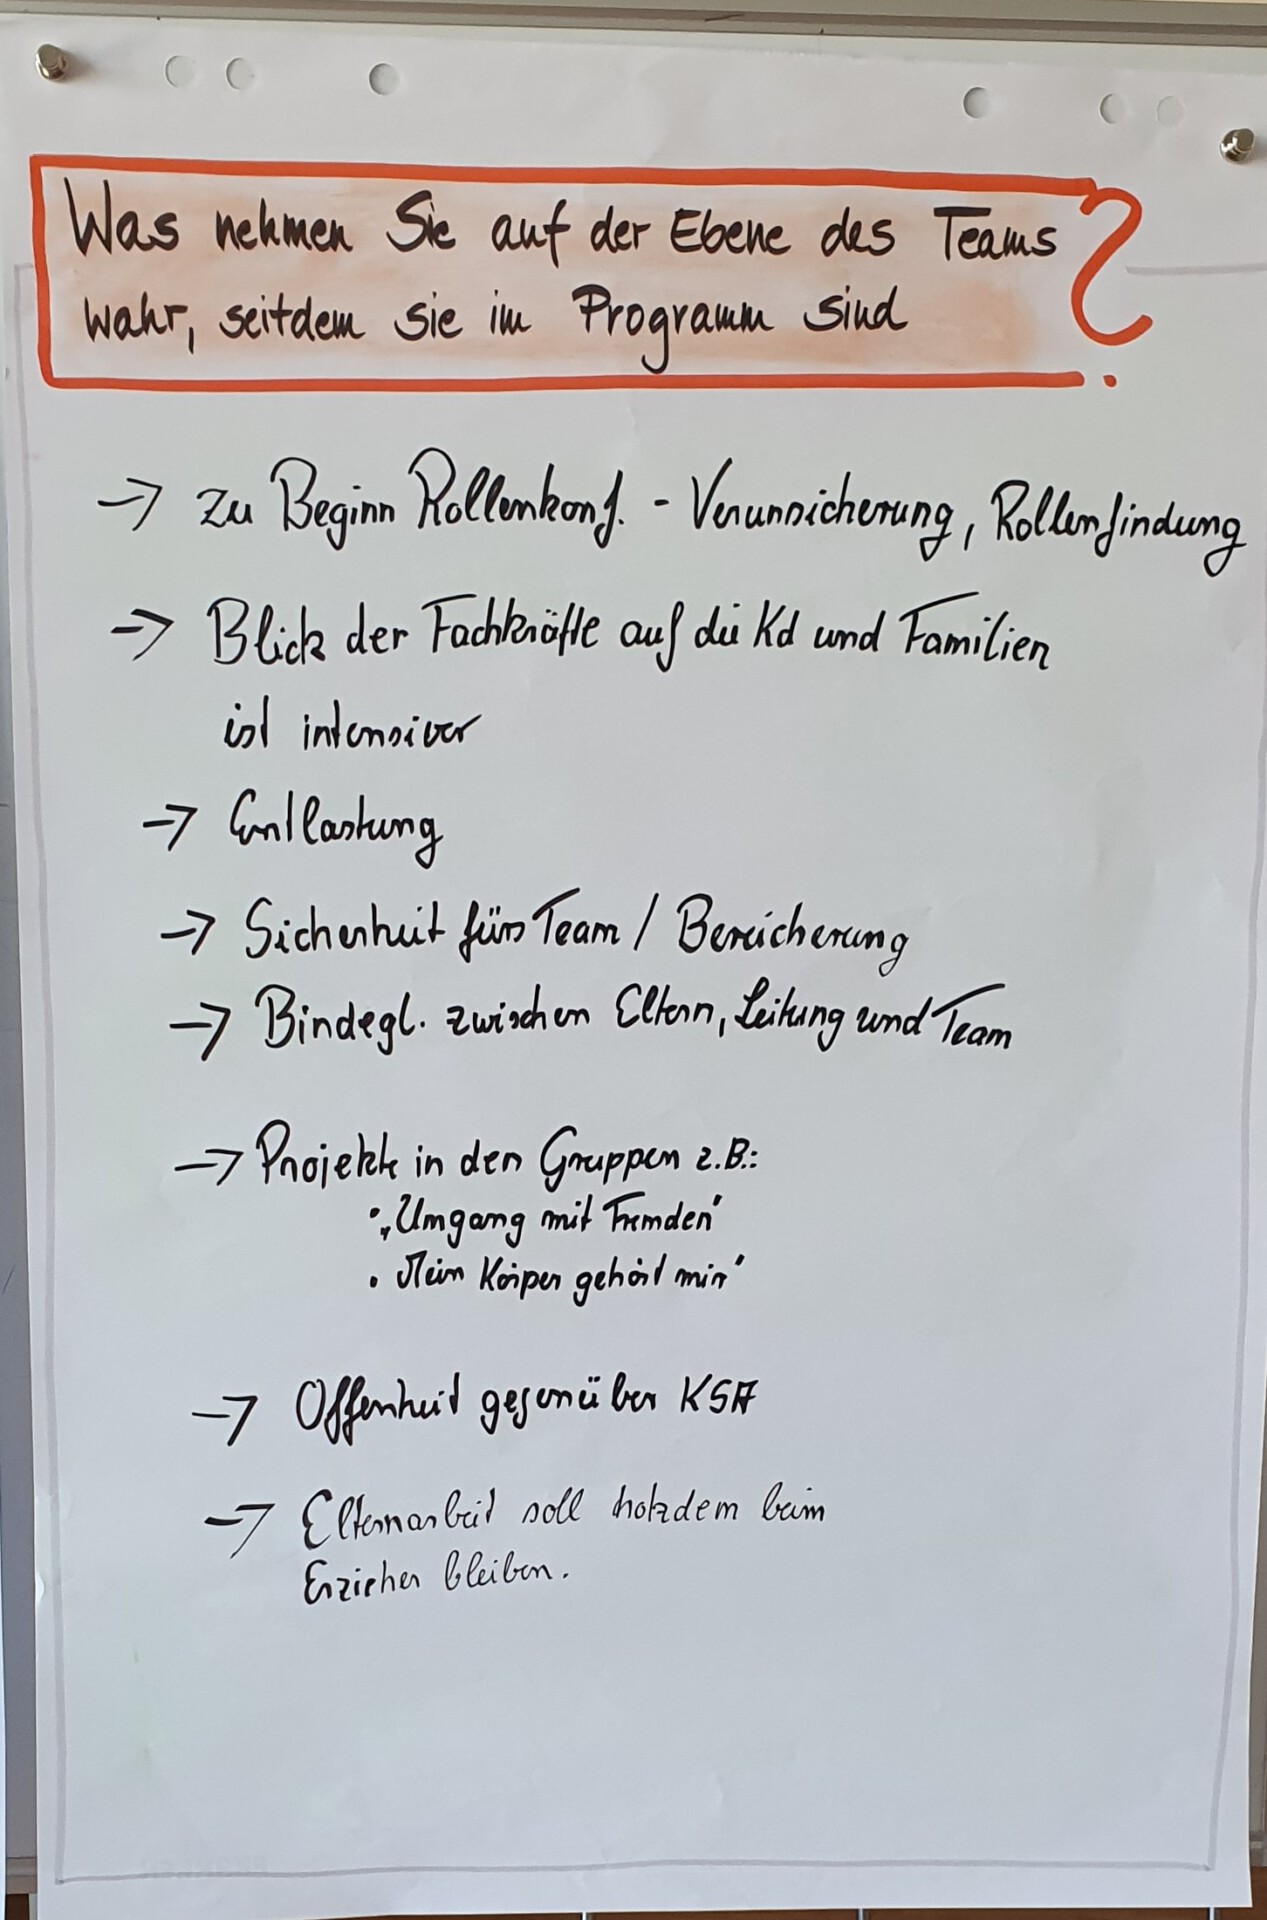 Was nehmen Sie auf der Ebene des Teams
wahr, seitdem sie im Programm sind ?
-> zu Beginn Rollenkonf. - Verunsicherung, Rollenfindung
-> Blick der Fachkräfte auf die Kd und Familien
ist intensiver
-> Entlastung
-> Sicherheit fürs Team / Bereicherung
-> Bindegl. zwischen Eltern, Leitung und Team
-> Projekte in den Gruppen z.B.:
• „Umgang mit Fremden"
• „Mein Körper gehört mir"
-> Offenheit gegenüber KSA
-> Elternarbeit soll trotzdem beim
Erzieher bleiben.